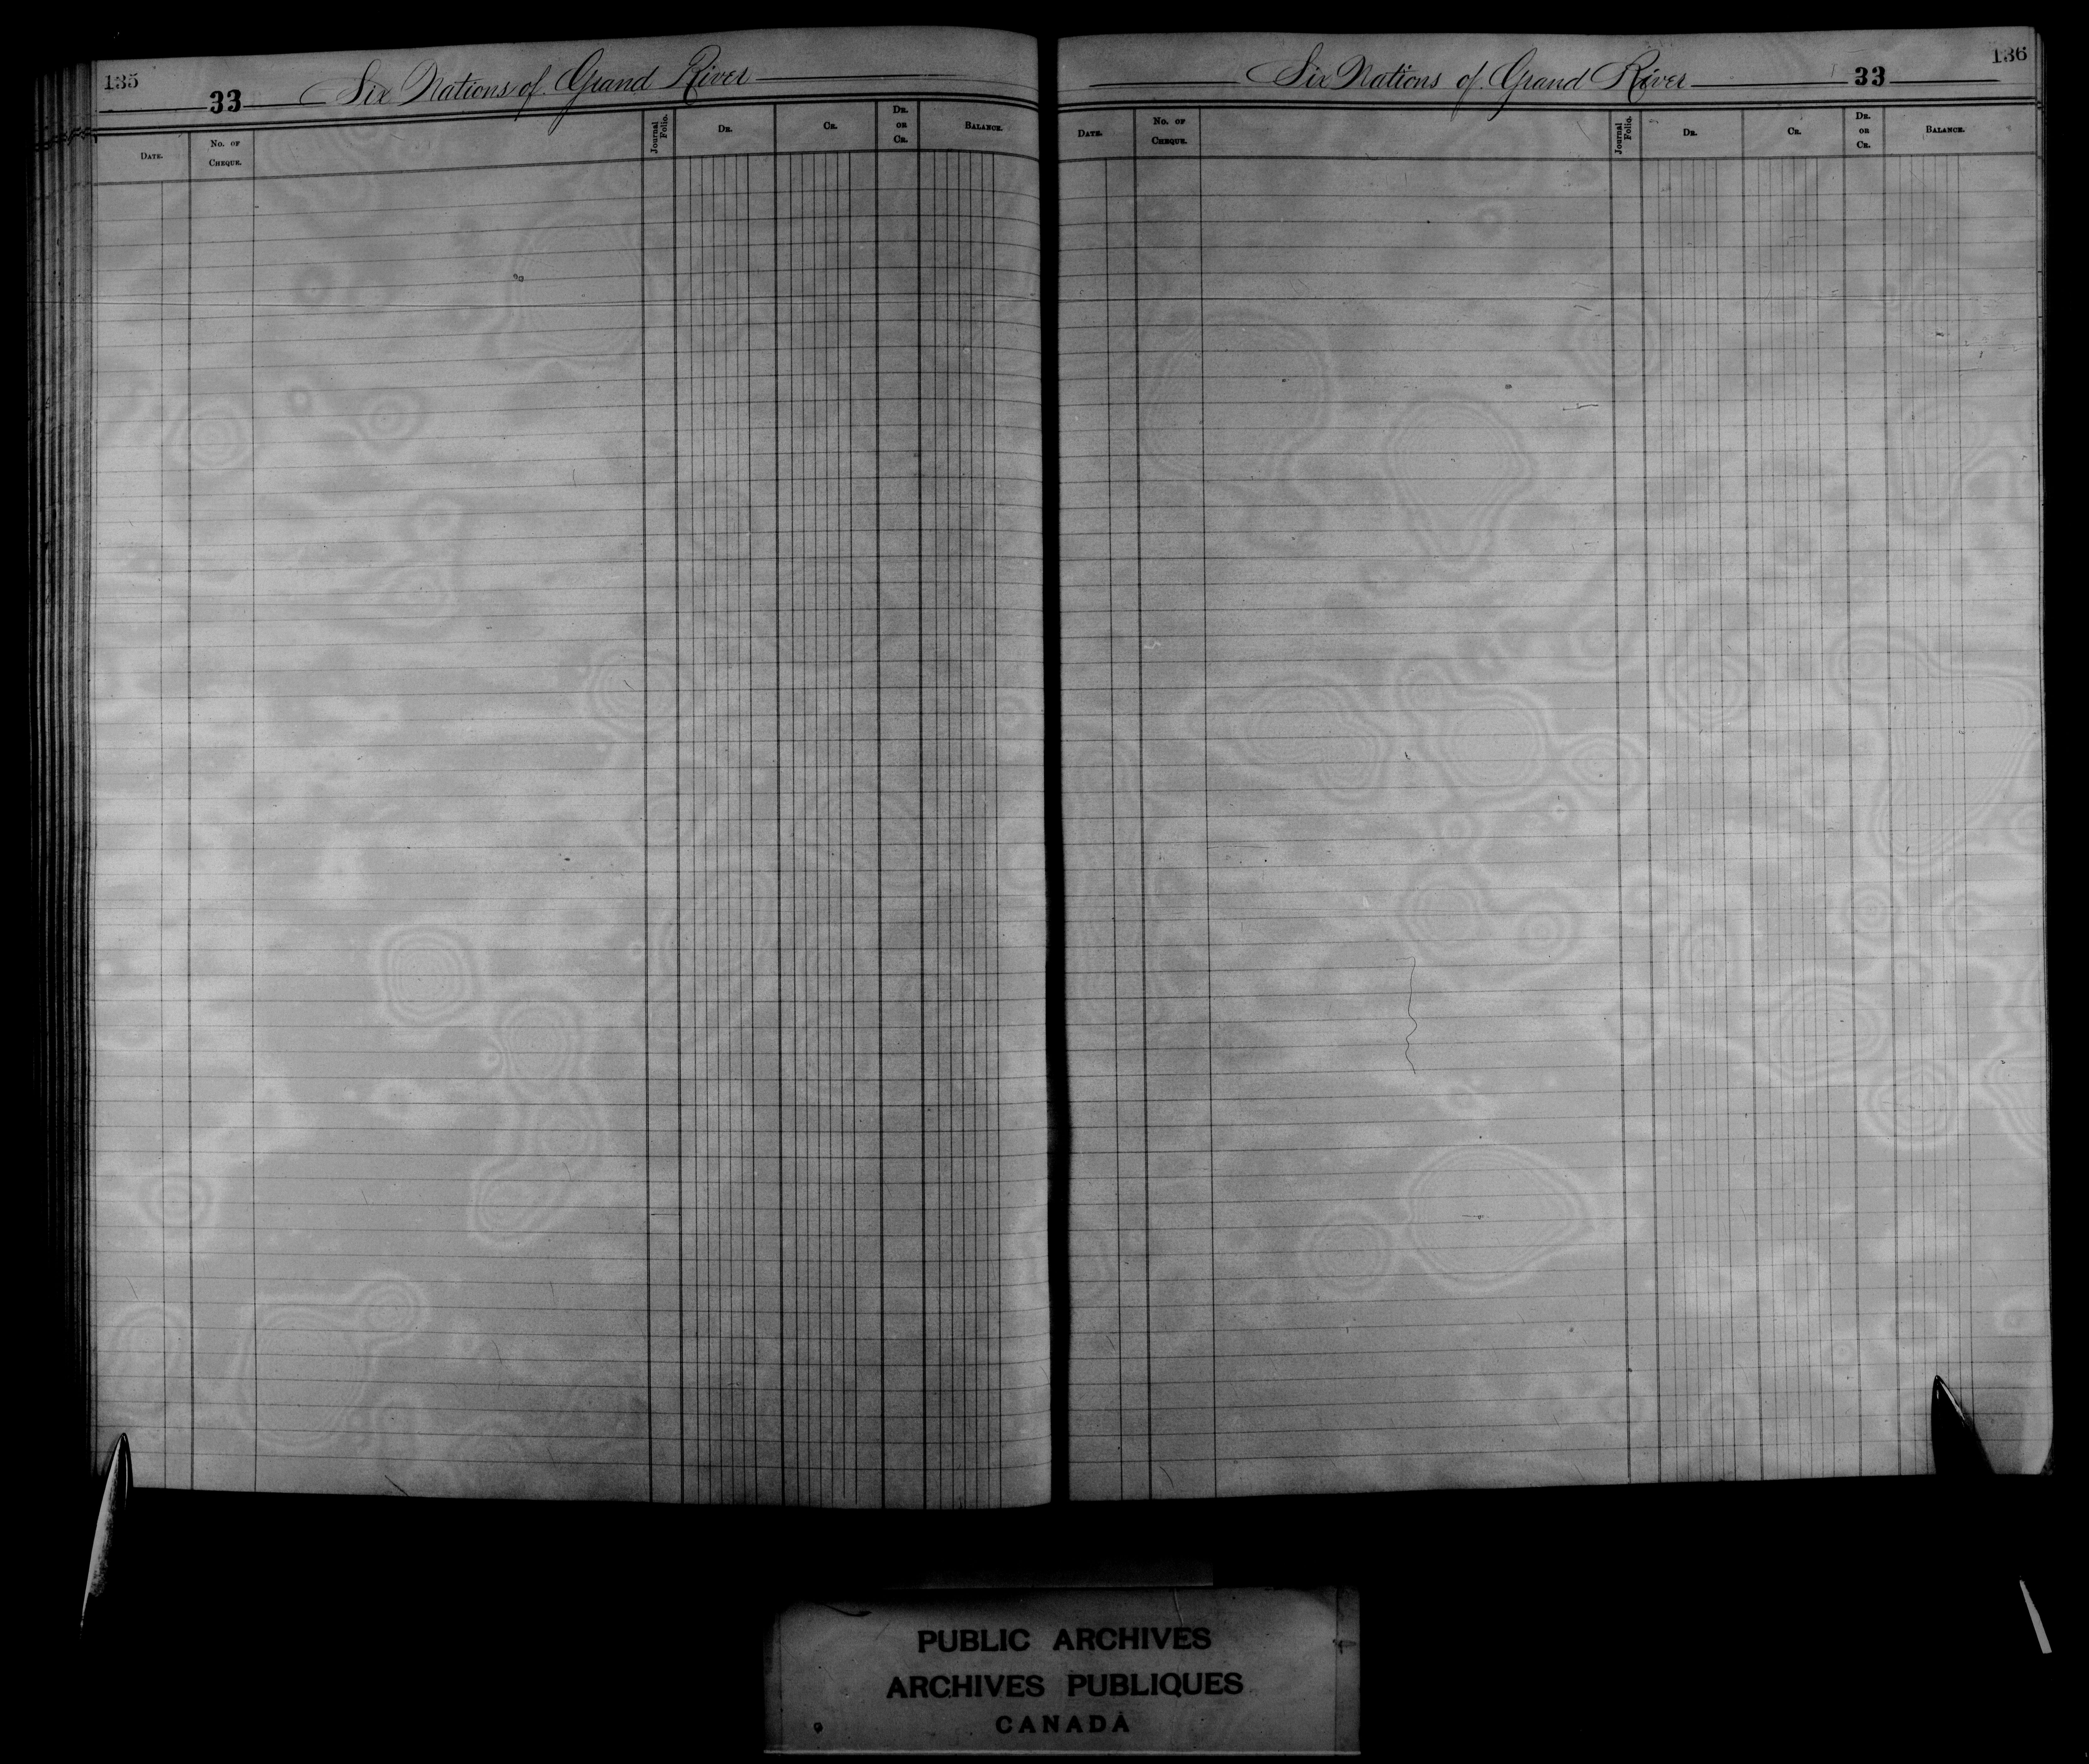 135
33 Six Nations of Grand River
DATE. No. OF CHEQUE. Journal Folio. DR. CR. DR. OR CR. BALANCE.
136
Six Nations of Grand River 33
DATE. No. OF CHEQUE. Journal Folio. DR. CR. DR. OR CR. BALANCE.
PUBLIC ARCHIVES
ARCHIVES PUBLIQUES
CANADA